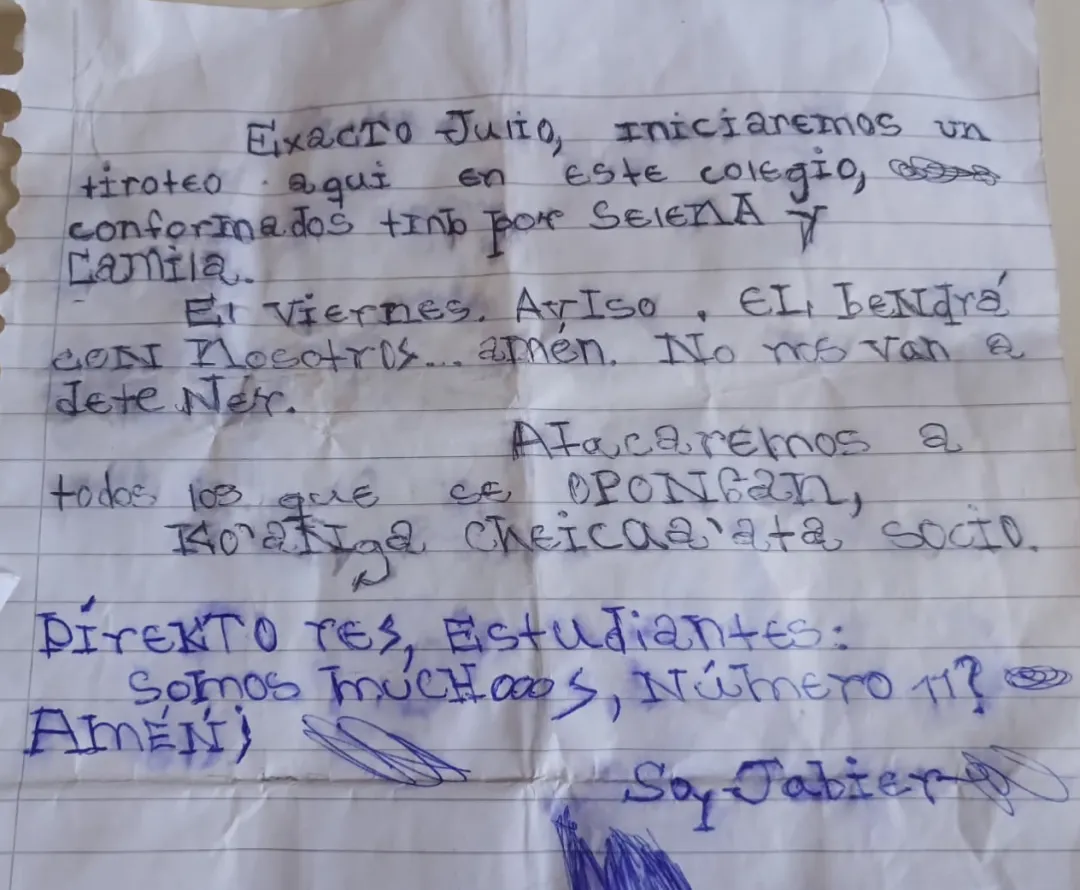 Exacto Julio, iniciaremos un
tiroteo aqui en este colegio,
conformados por Selena y
Camila.
El Viernes. Aviso. El bendrá
con nosotros... amén. No nos van a
detener.
Atacaremos a
todos los que se OPONGan,
socio.
DÍrEKTO res, Estudiantes:
Somos múCHooos, Número 11?
AmÉN;
Soy Jabier